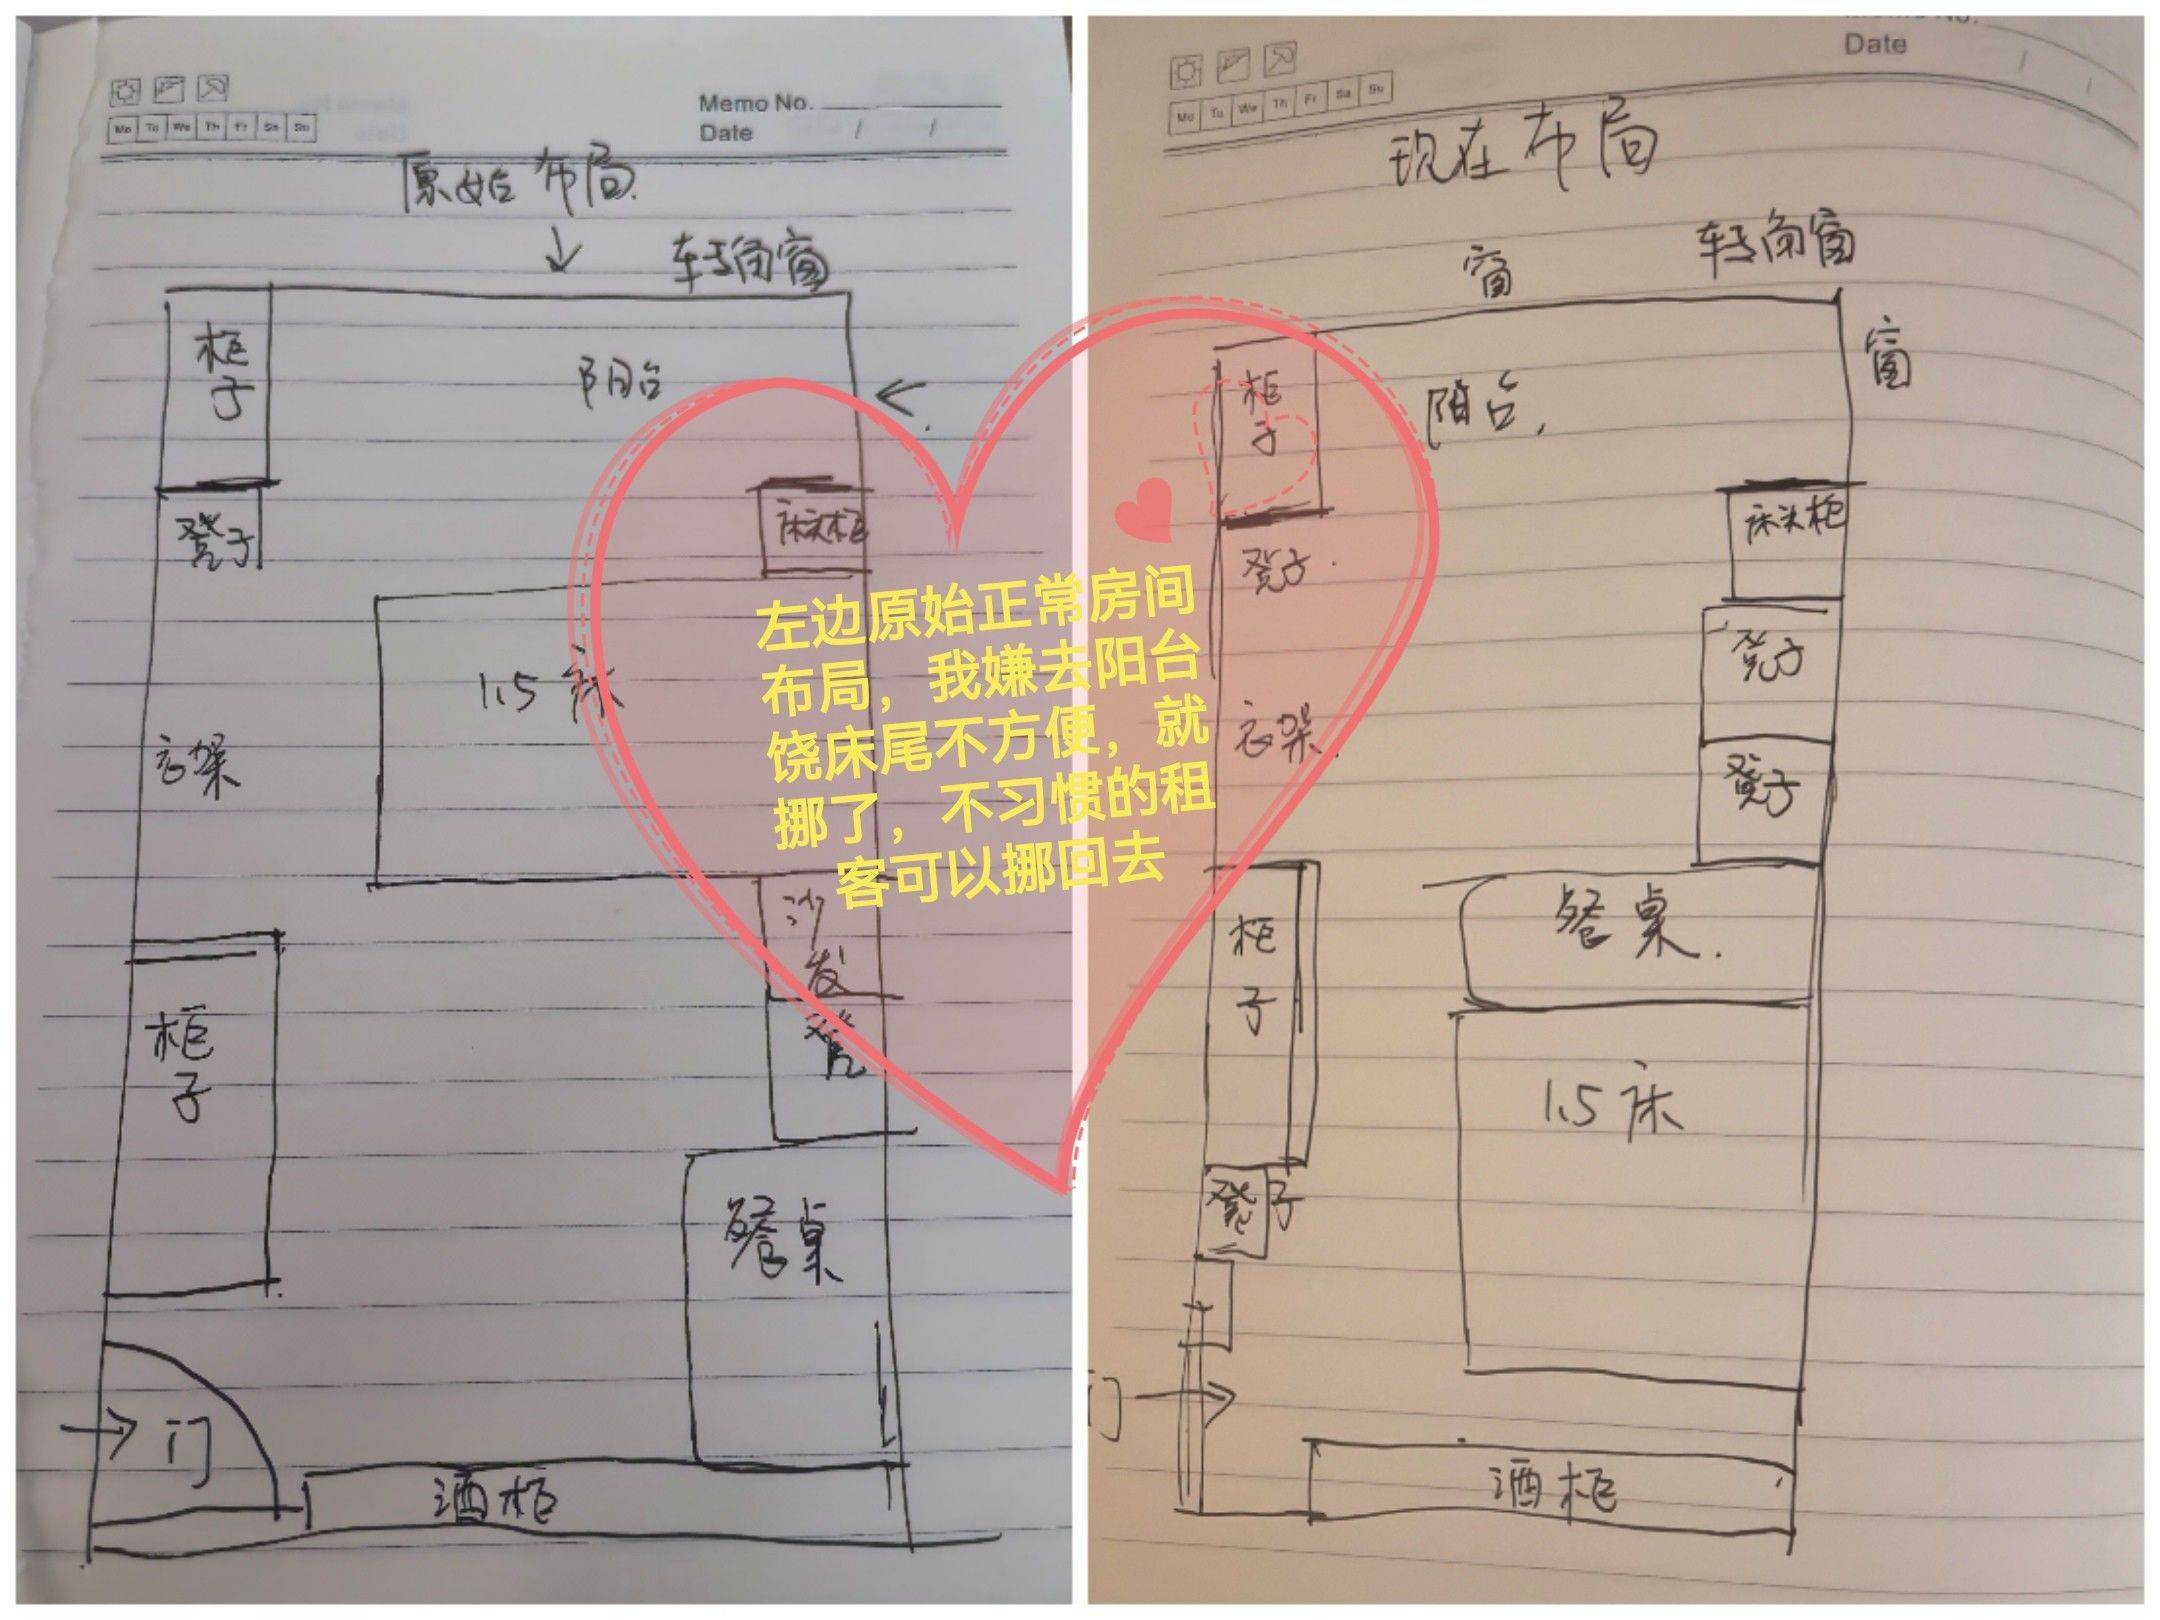 Memo No.
Mo Tu We Th Fr Sa Su
Date / /
原始布局
转角窗
柜子
阳台
凳子
床头柜
1.5 床
衣架
沙发
凳
柜子
餐桌
门
酒柜
Memo No.
Date / /
Mo Tu We Th Fr Sa Su
现在布局
窗
转角窗
窗
柜子
阳台
床头柜
凳子
凳子
衣架
凳子
柜子
餐桌
1.5 床
凳子
门
酒柜
左边原始正常房间
布局，我嫌去阳台
饶床尾不方便，就
挪了，不习惯的租
客可以挪回去